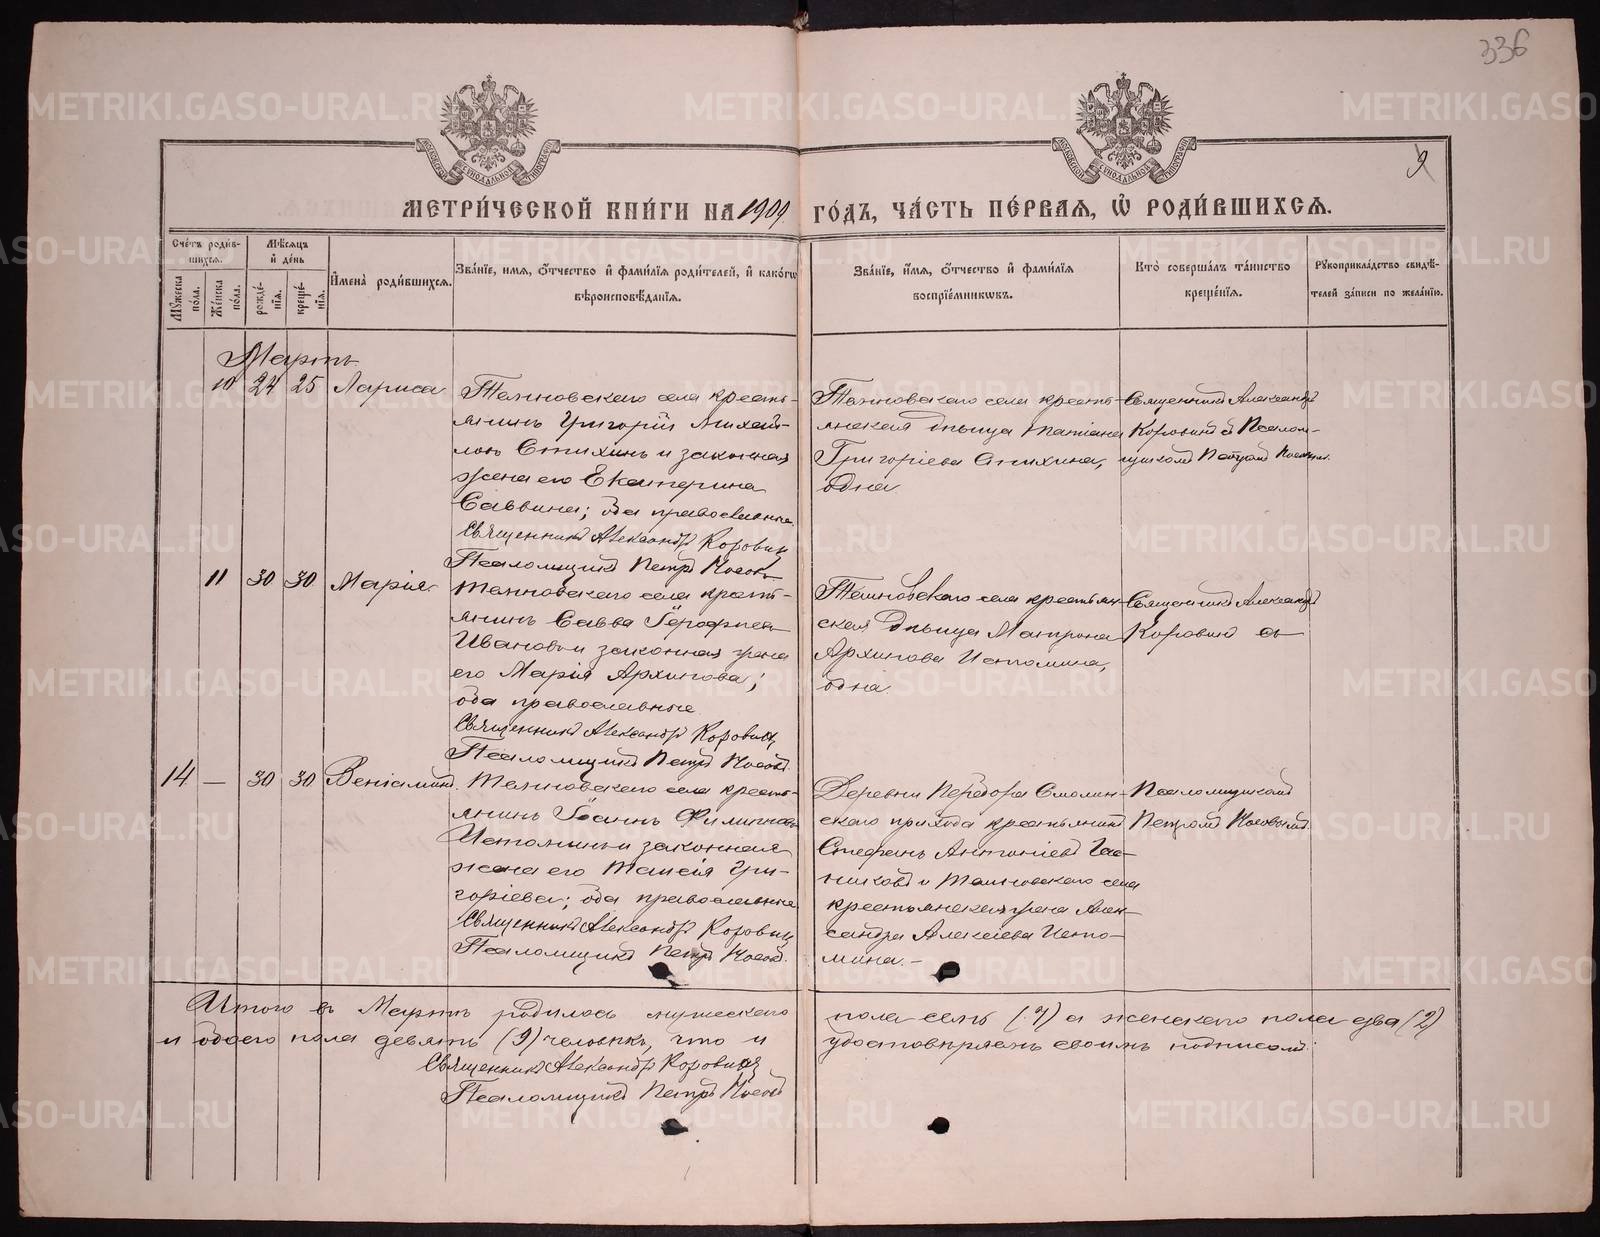 336
9
МОСКОВСКОЙ СѴНОДАЛЬНОЙ ТИПОГРАФІИ
МОСКОВСКОЙ СѴНОДАЛЬНОЙ ТИПОГРАФІИ
МЕТРИ́ЧЕСКОЙ КНИ́ГИ НА 1909 ГО́ДЪ, ЧА́СТЬ ПЕ́РВАЯ, Ѽ РОДИ́ВШИХСЯ.
Сче́тъ роди́в-
шихся.
Мужеска
пола.
Же́нска
по́ла.
Мѣ́сяцъ
и҆ де́нь
рожде́-
нїя.
креще́-
нїя.
И҆мена̀ роди́вшихся.
Зва́нїе, имя, ѻ҆́тчество и҆ фами́лїя роди́телей, и҆ како́гѡ
вѣроисповѣ́данїя.
Зва́нїе, и҆́мя, ѻ҆́тчество и҆ фами́лїя
воспрїе́мникѡвъ.
Кто̀ соверша́лъ та́инство
креще́нїя.
Рукоприкла́дство свидѣ́-
телей за́писи по жела́нїю.
Мартъ
10 24 25 Лариса
села кресть-
янинъ Григорій Михай-
ловъ Стихинъ и законная
жена его Екатерина
Саввина; оба православные
Священникъ Александръ Коровинъ
Псаломщикъ Петръ Носовъ
села кресть-
янская дѣвица Татіана
Григоріева Стихина,
одна
Священникъ Александръ
Коровинъ съ Псалом-
щикомъ Петромъ Носовымъ.
11 30 30 Марія
села кресть-
янинъ Савва
Ивановъ и законная жена
его Марія Архипова;
оба православные
Священникъ Александръ Коровинъ,
Псаломщикъ Петръ Носовъ.
села крестьян-
ская дѣвица Матрона
Архипова Истомина,
одна
Священникъ Александръ
Коровинъ съ
14 — 30 30 Веніаминъ.
села кресть-
янинъ Іоаннъ Филипповъ
Истоминъ и законная
жена его Таисія Гри-
горіева; оба православные
Священникъ Александръ Коровинъ
Псаломщикъ Петръ Носовъ.
Деревни Смолин-
скаго прихода крестьянинъ
Стефанъ Антоніевъ
и села
крестьянская жена Алек-
сандра Алексіева Исто-
мина.–
Псаломщикомъ
Петромъ Носовымъ.
Итого въ Мартѣ родилось мужескаго пола семь (7) а женскаго пола два (2)
и обоего пола девять (9) человѣкъ, что и удостовѣряемъ своимъ подписомъ:
Священникъ Александръ Коровинъ
Псаломщикъ Петръ Носовъ
METRIKI.GASO-URAL.RU